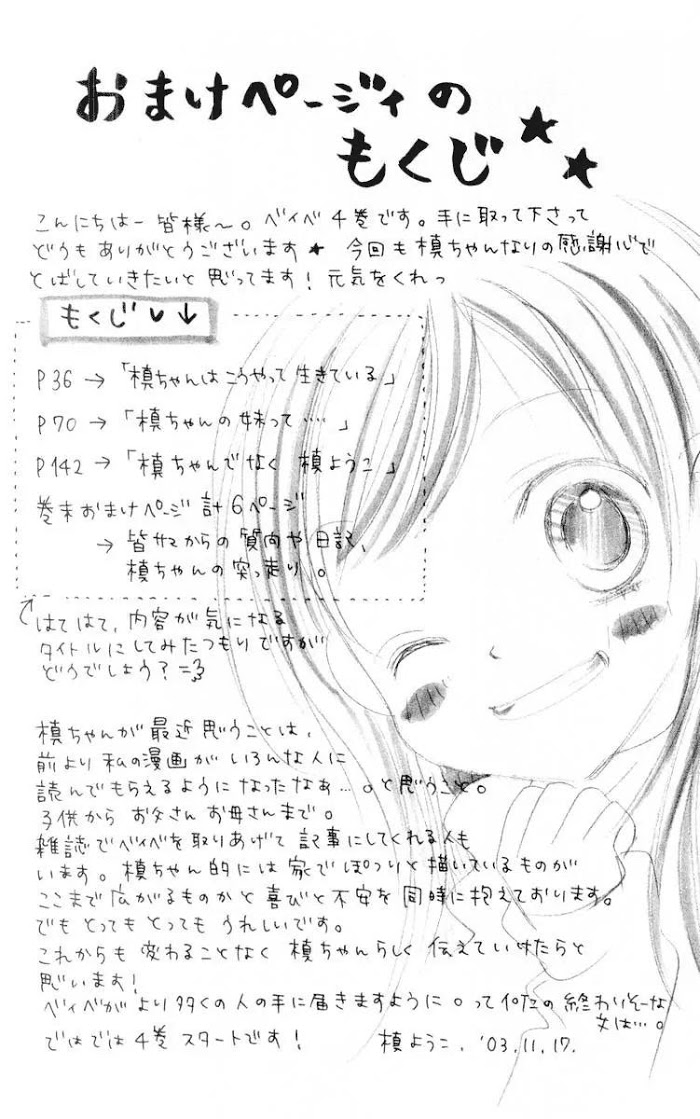 おまけページィの
もくじ★★
こんにちはー皆様〜。ベイベ4巻です。手に取って下さって
どうもありがとうございます★ 今回も槙ちゃんなりの感謝心で
とばしていきたいと思ってます！元気をくれっ
もくじ♥↓
P36→「槙ちゃんはこうやって生きている」
P70→「槙ちゃんの妹って‥‥」
P142→「槙ちゃんでなく 槙ようこ」
巻末おまけページ 計6ページ
→皆サマからの質問や日記、
槙ちゃんの突っ走り。
はてはて、内容が気になる
タイトルにしてみたつもりですが
どうでしょう？
槙ちゃんが最近思うことは、
前より私の漫画がいろんな人に
読んでもらえるようになったなぁ…。と思うこと。
子供からお父さんお母さんまで。
雑誌でベイベを取りあげて記事にしてくれる人も
います。槙ちゃん的には家でぽつりと描いているものが
ここまで広がるものかと喜びと不安を同時に抱えております。
でもとってもとってもうれしいです。
これからも変わることなく槙ちゃんらしく伝えていけたらと
思います！
ベイベがより多くの人の手に届きますように。って の終わりそーな
文は…。
ではでは4巻スタートです！ 槙ようこ. '03.11.17.